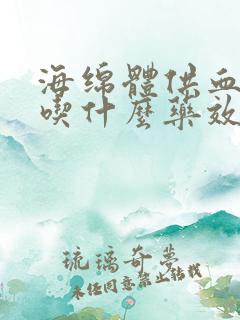 海绵體供血
喫什麼藥效
琉璃奇夢
未经同意禁止转载